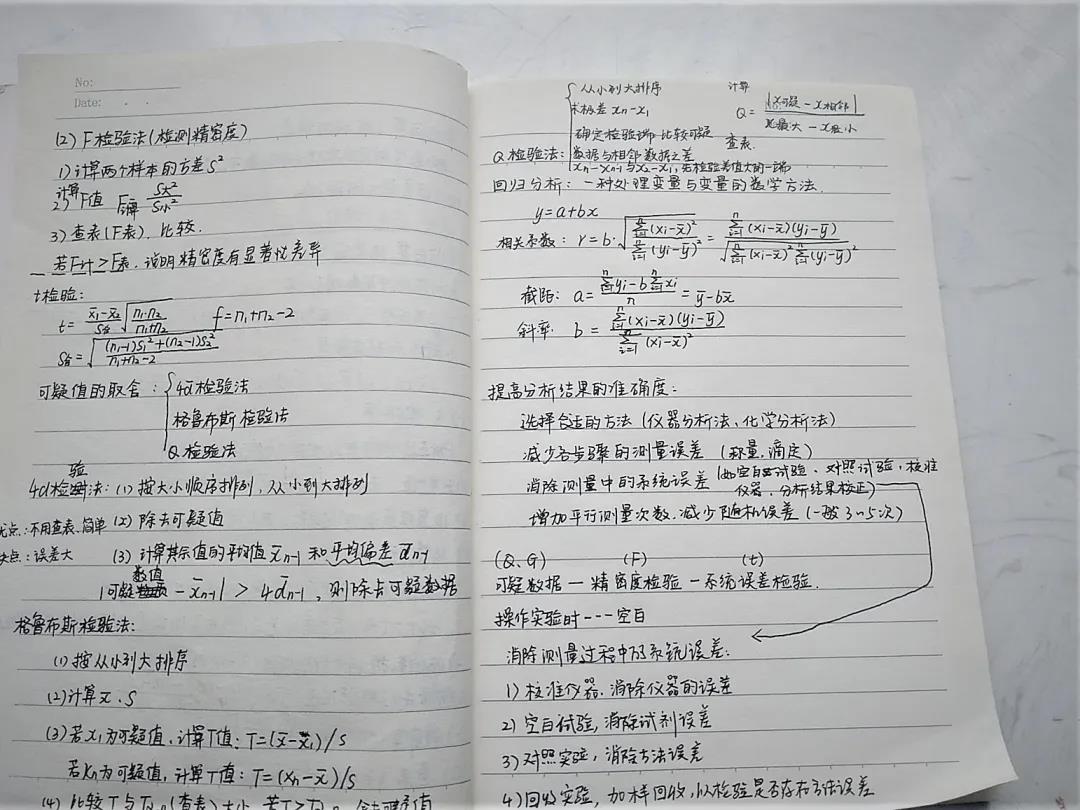 No:
Date:
(2) F检验法(检测精密度)
1)计算两个样本的方差S²
2)计算F值 F计算 S大²/S小²
3)查表(F表).比较.
若F计>F表.说明精密度有显著性差异
t检验:
t=(x̄₁-x̄₂)/S合 √(n₁·n₂/(n₁+n₂)) f=n₁+n₂-2
S合=√(((n₁-1)S₁²+(n₂-1)S₂²)/(n₁+n₂-2))
可疑值的取舍:{4d̄检验法
格鲁布斯检验法
Q检验法
4d检验法:(1)按大小顺序排列,从小到大排列
优点:不用查表、简单 (2)除去可疑值
缺点:误差大 (3)计算其余值的平均值x̄n-1和平均偏差d̄n-1
|可疑数值-x̄n-1|>4d̄n-1,则除去可疑数据
格鲁布斯检验法:
(1)按从小到大排序
(2)计算x̄.S
(3)若x₁为可疑值,计算T值:T=(x̄-x₁)/S
若Xn为可疑值,计算T值:T=(xn-x̄)/S
(4)比较T与 (查表)大小,若T>
从小到大排序 计算
求极差xn-x₁ Q=|x可疑-x相邻|/x最大-x最小
确定检验端 比较可疑 查表.
Q检验法:数据与相邻数据之差
xn-xn-1与x₂-x₁,先检验差值大的一端
回归分析:一种处理变量与变量的数学方法.
y=a+bx
相关系数:r=b·√(∑(xi-x̄)²/∑(yi-ȳ)²)=∑(xi-x̄)(yi-ȳ)/√(∑(xi-x̄)²∑(yi-ȳ)²)
截距:a=(∑yi-b∑xi)/n=ȳ-bx̄
斜率: b=∑(xi-x̄)(yi-ȳ)/∑(xi-x̄)²
提高分析结果的准确度:
选择合适的方法(仪器分析法、化学分析法)
减少各步骤的测量误差(称量、滴定)
消除测量中的系统误差(如空白试验、对照试验,校准
仪器,分析结果校正)
增加平行测量次数.减少随机误差(一般3~5次)
(Q、G) (F) (t)
可疑数据—精密度检验—系统误差检验.
操作实验时---空白
消除测量过程中的系统误差:
1)校准仪器.消除仪器的误差
2)空白试验,消除试剂误差
3)对照实验,消除方法误差
4)回收实验,加样回收,以检验是否存在方法误差